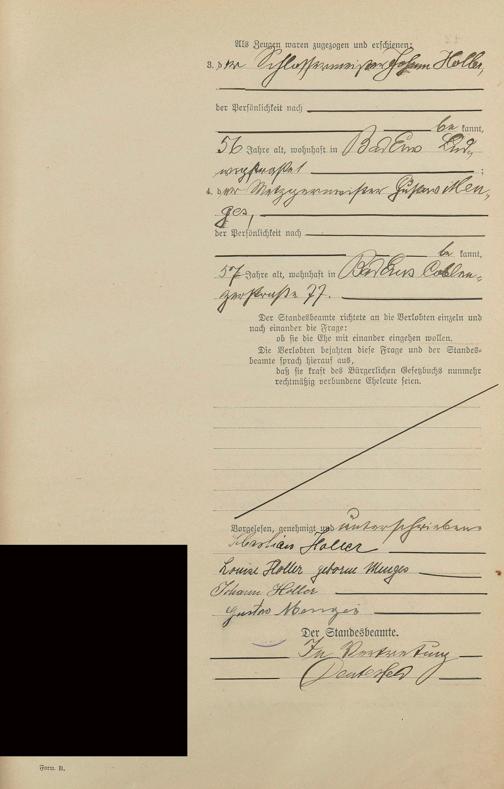 Als Zeugen waren zugezogen und erschienen:
3. der Schlossermeister Johann Holler,
der Persönlichkeit nach
be kannt,
56 Jahre alt, wohnhaft in Bad Ems Lud-
wigstraße 1 ;
4. der Metzgermeister Gustav Men-
ges,
der Persönlichkeit nach
be kannt,
57 Jahre alt, wohnhaft in Bad Ems Coblen-
zerstraße 77.
Der Standesbeamte richtete an die Verlobten einzeln und
nach einander die Frage:
ob sie die Ehe mit einander eingehen wollen.
Die Verlobten bejahten diese Frage und der Standes-
beamte sprach hierauf aus,
daß sie kraft des Bürgerlichen Gesetzbuchs nunmehr
rechtmäßig verbundene Eheleute seien.
Vorgelesen, genehmigt und unterschrieben
Sebastian Holler
Louise Holler geborne Menges
Johann Holler
Gustav Menges
Der Standesbeamte.
In Vertretung
Form. B.